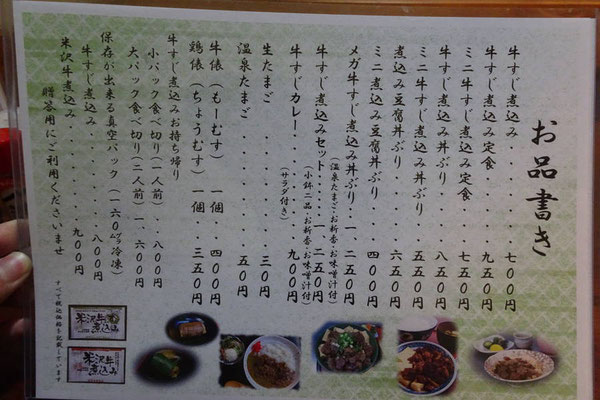 お品書き
牛すじ煮込み・・・・・七００円
牛すじ煮込み定食・・・九五０円
ミニ牛すじ煮込み定食・・七五０円
牛すじ煮込み丼ぶり・・・八五０円
ミニ牛すじ煮込み丼ぶり・・五五０円
煮込み豆腐丼ぶり・・・・六五０円
ミニ煮込み豆腐丼ぶり・・・四００円
メガ牛すじ煮込み丼ぶり・・一、二五０円
（温泉たまご・お新香・お味噌汁付）
牛すじ煮込みセット・・・一、二五０円
（小鉢二品・お新香・お味噌汁付）
牛すじカレー・・・・・九００円
（サラダ付き）
生たまご・・・・・三０円
温泉たまご・・・・・五０円
牛俵（もーむす）一個・・四００円
鶏俵（ちょうむす）一個・・三五０円
牛すじ煮込みお持ち帰り
小パック食べ切り（一人前）・・八００円
大パック食べ切り（二人前）一、六００円
保存が出来る真空パック（一六０㌘冷凍）
牛すじ煮込み・・・・・八００円
米沢牛煮込み・・・・・九００円
贈答用にご利用くださいませ
すべて税込価格を記載しています
米沢牛煮込み
米沢牛煮込み